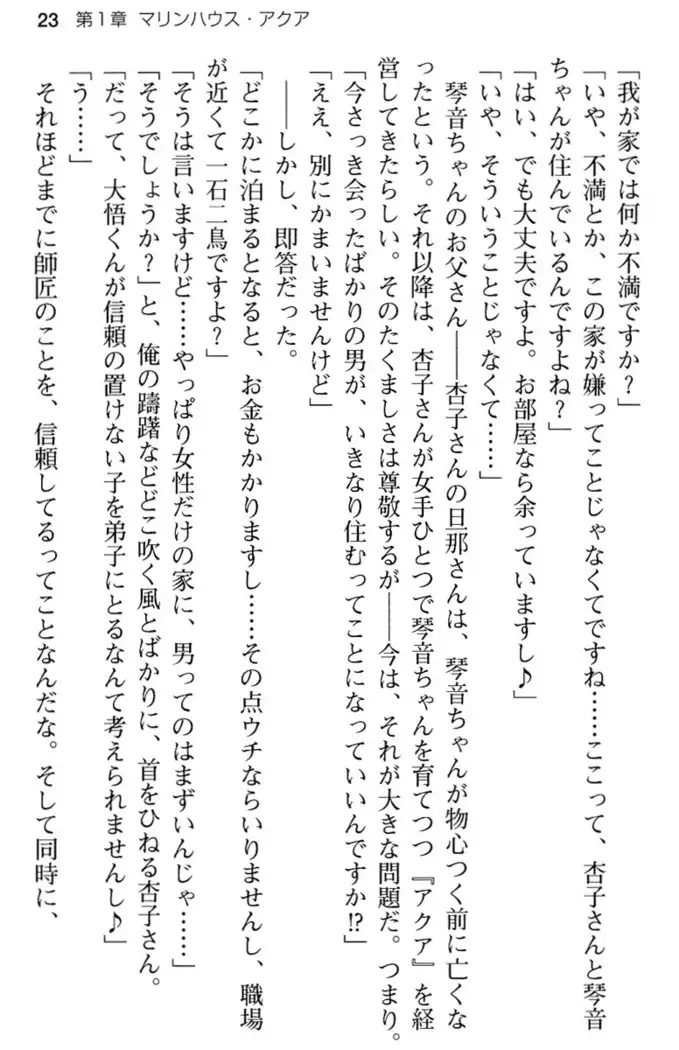 23 第1章 マリンハウス・アクア
「我が家では何か不満ですか?」
「いや、不満とか、この家が嫌ってことじゃなくてですね……ここって、杏子さんと琴音
ちゃんが住んでいるんですよね?」
「はい、でも大丈夫ですよ。お部屋なら余っていますし♪」
「いや、そういうことじゃなくて……」
琴音ちゃんのお父さん――杏子さんの旦那さんは、琴音ちゃんが物心つく前に亡くな
ったという。それ以降は、杏子さんが女手ひとつで琴音ちゃんを育てつつ『アクア』を経
営してきたらしい。そのたくましさは尊敬するが――今は、それが大きな問題だ。つまり。
「今さっき会ったばかりの男が、いきなり住むってことになっていいんですか!?」
「ええ、別にかまいませんけど」
――しかし、即答だった。
「どこかに泊まるとなると、お金もかかりますし……その点ウチならいりませんし、職場
が近くて一石二鳥ですよ?」
「そうは言いますけど……やっぱり女性だけの家に、男ってのはまずいんじゃ……」
「そうでしょうか?」と、俺の躊躇などどこ吹く風とばかりに、首をひねる杏子さん。
「だって、大悟くんが信頼の置けない子を弟子にとるなんて考えられませんし♪」
「う……」
それほどまでに師匠のことを、信頼してるってことなんだな。そして同時に、